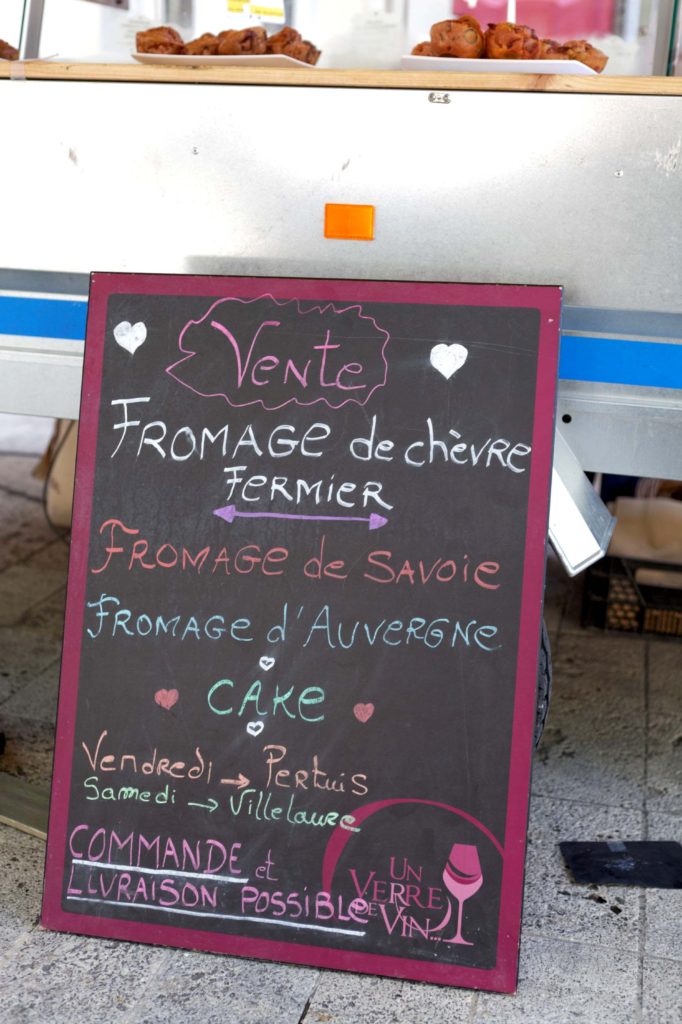 Vente
FROMAGE de chèvre
FERMIER
FROMAGE de SAVOIE
FROMAGE d'AUVERGNE
CAKE
Vendredi → Pertuis
Samedi → Villelaure
COMMANDE et
LIVRAISON POSSIBLE
UN
VERRE
DE VIN...